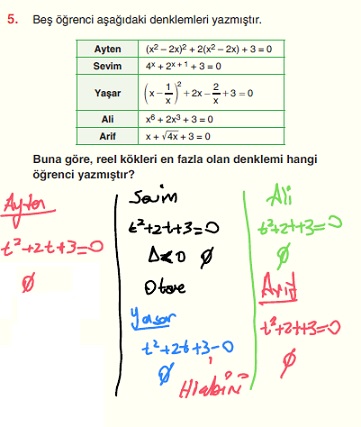 5. Beş öğrenci aşağıdaki denklemleri yazmıştır.
Ayten (x² – 2x)² + 2(x² – 2x) + 3 = 0
Sevim 4ˣ + 2ˣ⁺¹ + 3 = 0
Yaşar (x – 1/x)² + 2x – 2/x + 3 = 0
Ali x⁶ + 2x³ + 3 = 0
Arif x + √4x + 3 = 0
Buna göre, reel kökleri en fazla olan denklemi hangi
öğrenci yazmıştır?
Ayten
t²+2t+3=0
∅
Sevim
t²+2t+3=0
Δ<0 ∅
Yaşar
t²+2t+3=0
∅
Hiçbiri
Ali
t²+2t+3=0
∅
Arif
t²+2t+3=0
∅